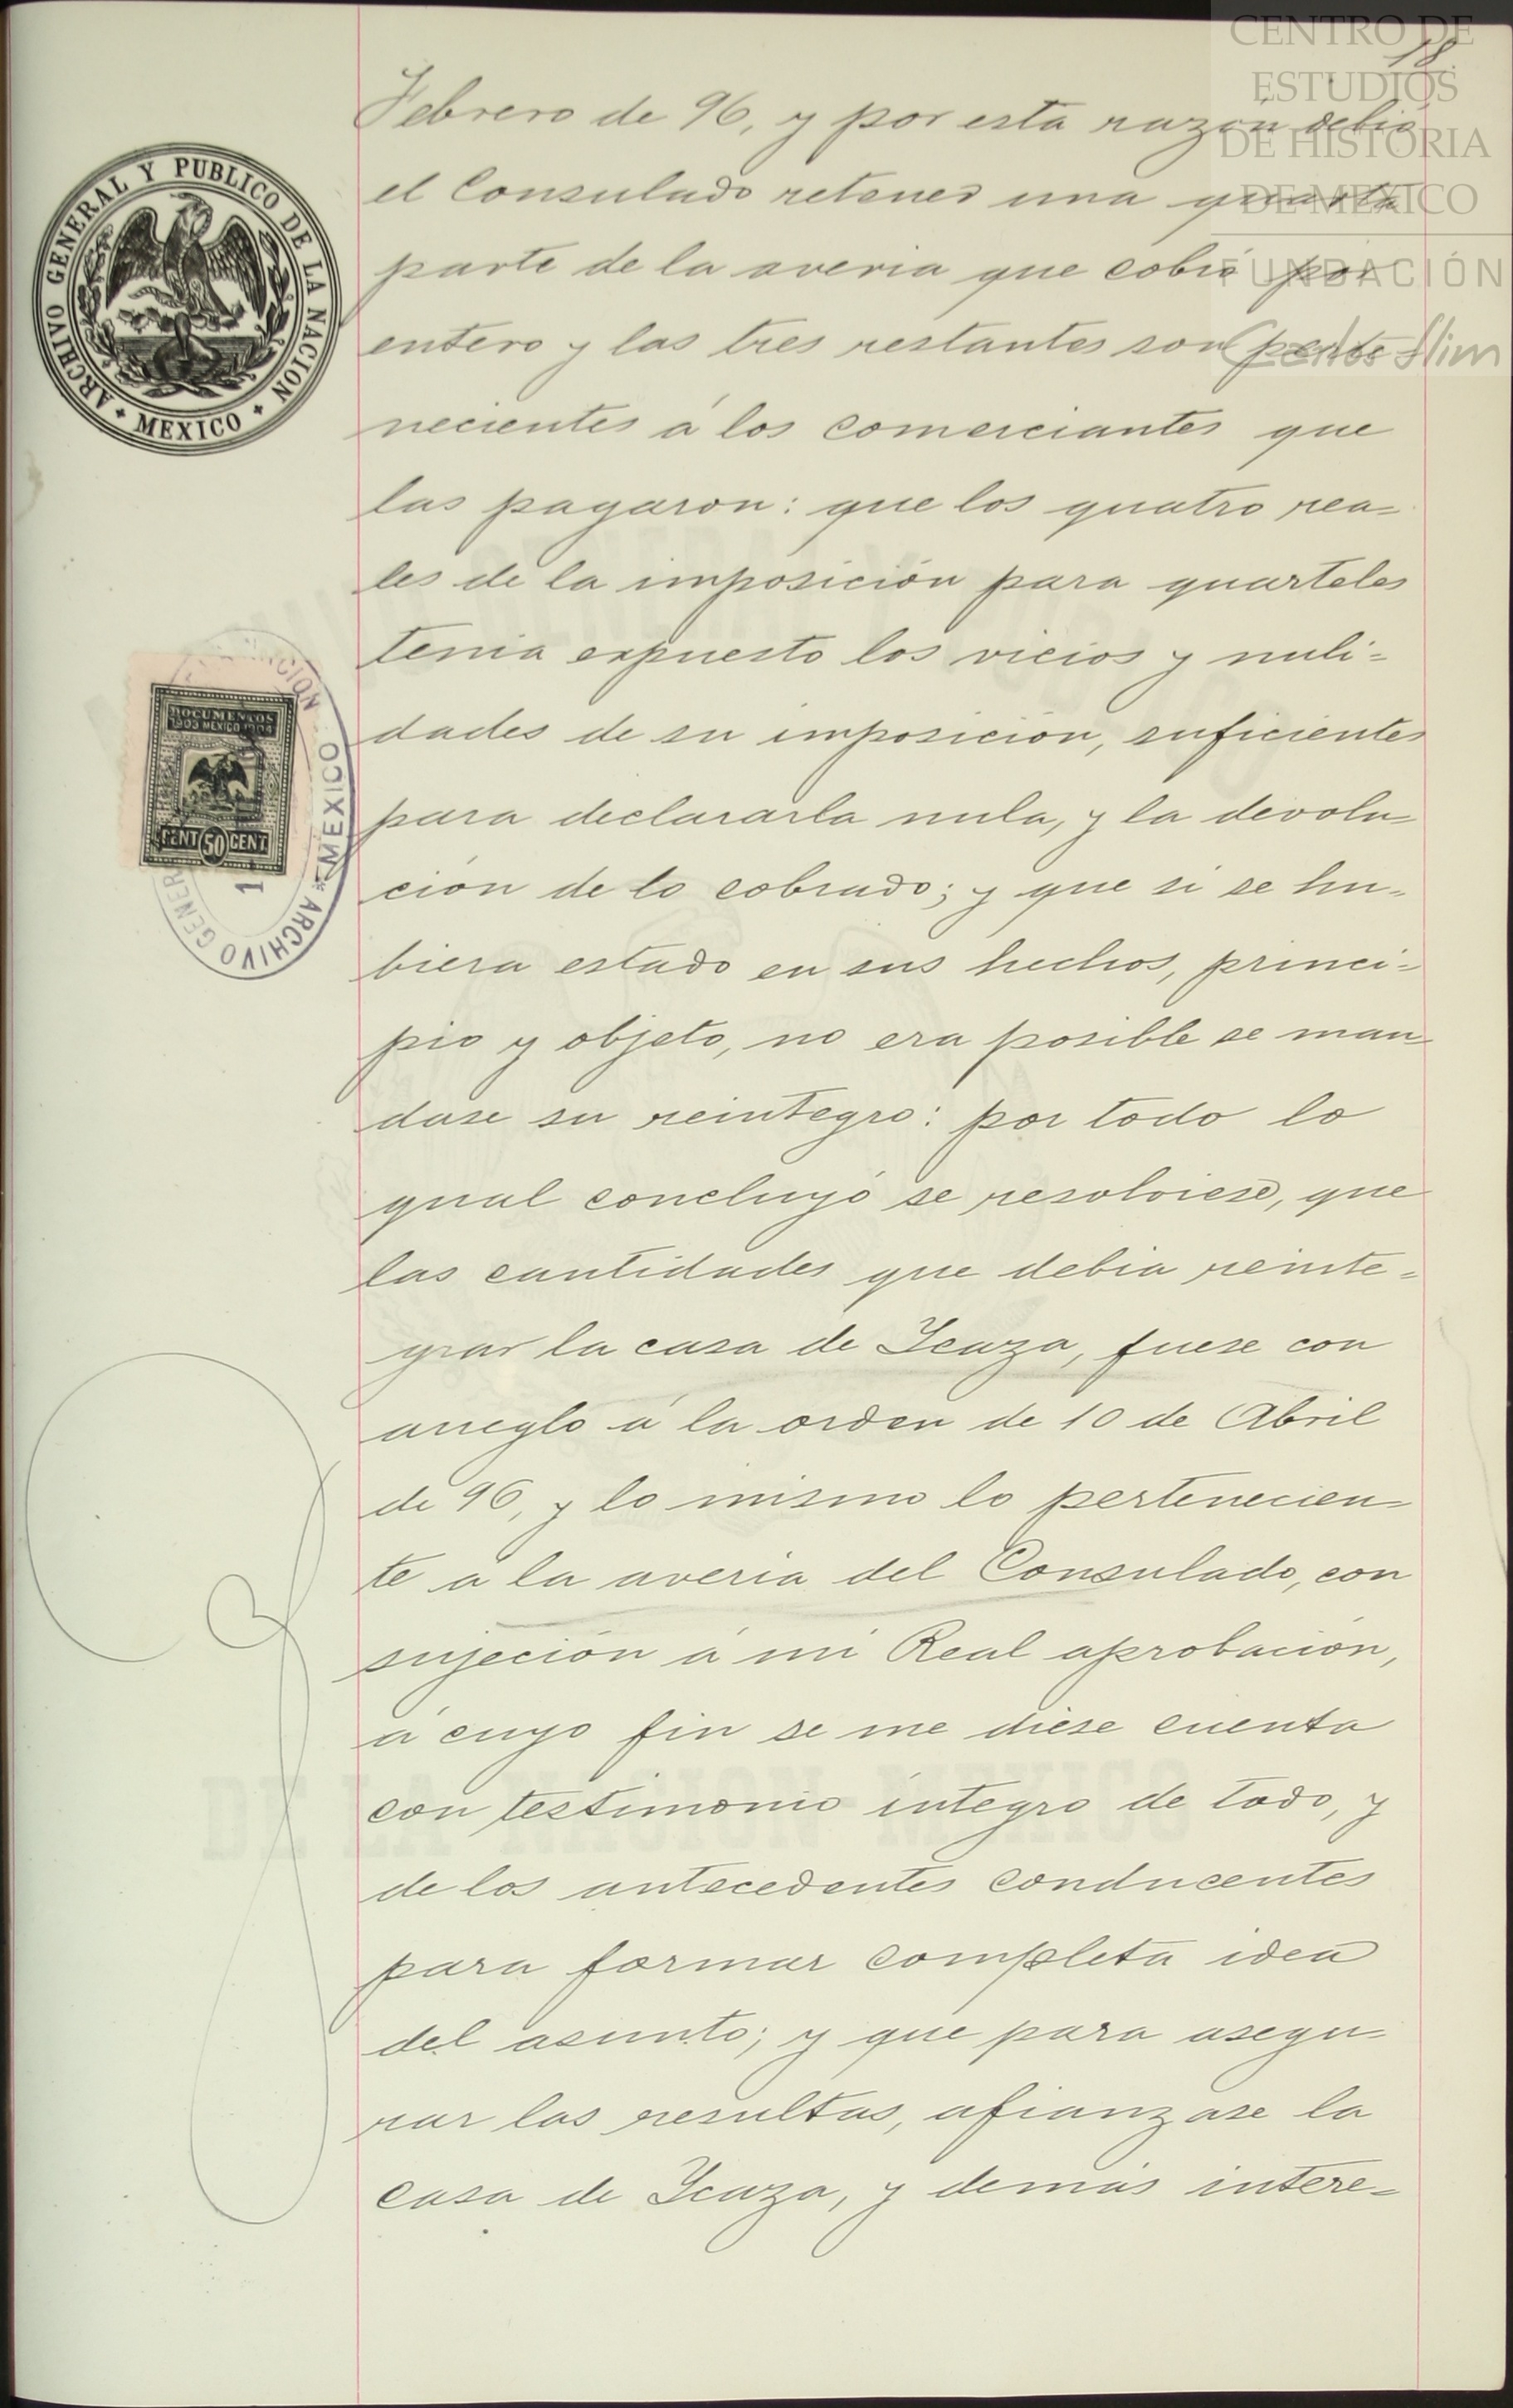 CENTRO DE
ESTUDIOS
DE HISTORIA
DE MEXICO
FUNDACIÓN
Carlos Slim
18.
Febrero de 96, y por esta razón debió
el Consulado retener una quarta
parte de la averia que cobró por
entero y las tres restantes son perte-
necientes á los comerciantes que
las pagaron: que los quatro rea=
les de la imposición para quarteles
tenia expuesto los vicios y nuli=
dades de su imposición, suficientes
para declararla nula, y la devolu=
ción de lo cobrado; y que si se hu-
biera estado en sus hechos, princi=
pio y objeto, no era posible se man-
dase su reintegro: por todo lo
qual concluyó se resolviese, que
las cantidades que debia reinte=
grar la casa de Icaza, fuese con
arreglo á la orden de 10 de Abril
de 96, y lo mismo lo pertenecien=
te a la averia del Consulado, con
sujeción á mi Real aprobación,
á cuyo fin se me diese cuenta
con testimonio integro de todo, y
de los antecedentes conducentes
para formar completa idea
del asunto; y que para asegu-
rar las resultas, afianzase la
casa de Icaza, y demás intere=
ARCHIVO GENERAL Y PUBLICO DE LA NACION
MEXICO
DOCUMENTOS
MEXICO
CENT 50 CENT
ARCHIVO GENER
MEXICO